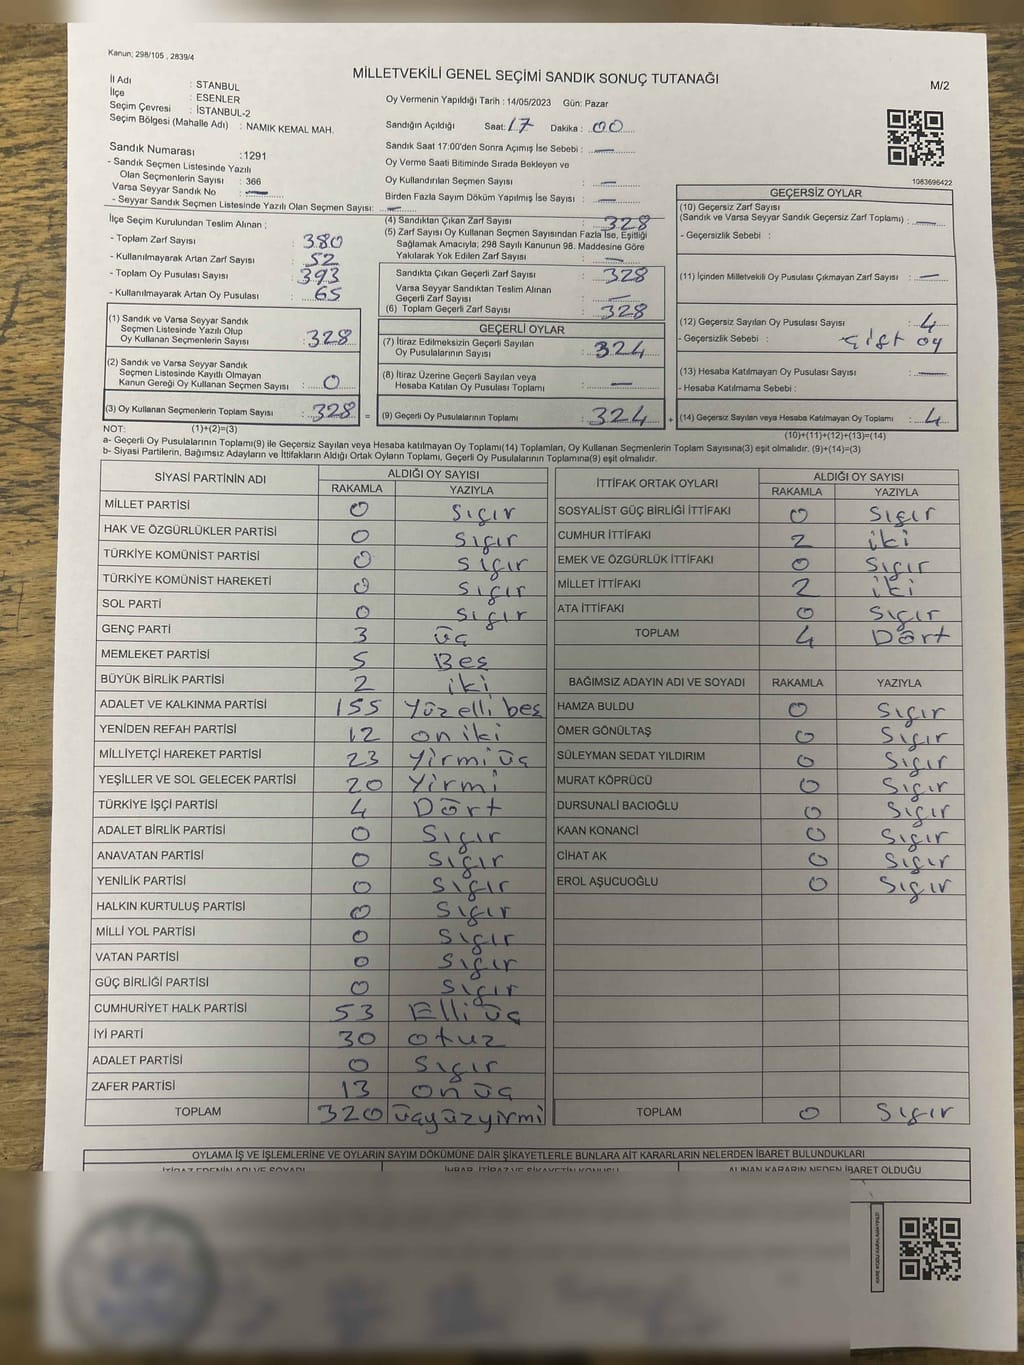 Kanun; 298/105 , 2839/4
MİLLETVEKİLİ GENEL SEÇİMİ SANDIK SONUÇ TUTANAĞI
M/2
İl Adı : STANBUL
İlçe : ESENLER
Seçim Çevresi : İSTANBUL-2
Seçim Bölgesi (Mahalle Adı) : NAMIK KEMAL MAH.
Sandık Numarası : 1291
- Sandık Seçmen Listesinde Yazılı
Olan Seçmenlerin Sayısı : 366
Varsa Seyyar Sandık No : —
- Seyyar Sandık Seçmen Listesinde Yazılı Olan Seçmen Sayısı: —
Oy Vermenin Yapıldığı Tarih : 14/05/2023 Gün: Pazar
Sandığın Açıldığı Saat: 17 Dakika : 00
Sandık Saat 17:00'den Sonra Açımış İse Sebebi : —
Oy Verme Saati Bitiminde Sırada Bekleyen ve
Oy Kullandırılan Seçmen Sayısı : —
Birden Fazla Sayım Döküm Yapılmış İse Sayısı : —
1083696422
İlçe Seçim Kurulundan Teslim Alınan ;
- Toplam Zarf Sayısı : 380
- Kullanılmayarak Artan Zarf Sayısı : 52
- Toplam Oy Pusulası Sayısı : 393
- Kullanılmayarak Artan Oy Pusulası : 65
(1) Sandık ve Varsa Seyyar Sandık
Seçmen Listesinde Yazılı Olup
Oy Kullanan Seçmenlerin Sayısı : 328
(2) Sandık ve Varsa Seyyar Sandık
Seçmen Listesinde Kayıtlı Olmayan
Kanun Gereği Oy Kullanan Seçmen Sayısı : 0
(3) Oy Kullanan Seçmenlerin Toplam Sayısı : 328 =
(4) Sandıktan Çıkan Zarf Sayısı : 328
(5) Zarf Sayısı Oy Kullanan Seçmen Sayısından Fazla İse, Eşitliği
Sağlamak Amacıyla; 298 Sayılı Kanunun 98. Maddesine Göre
Yakılarak Yok Edilen Zarf Sayısı : —
Sandıkta Çıkan Geçerli Zarf Sayısı : 328
Varsa Seyyar Sandıktan Teslim Alınan
Geçerli Zarf Sayısı : —
(6) Toplam Geçerli Zarf Sayısı : 328
GEÇERLİ OYLAR
(7) İtiraz Edilmeksizin Geçerli Sayılan
Oy Pusulalarının Sayısı : 324
(8) İtiraz Üzerine Geçerli Sayılan veya
Hesaba Katılan Oy Pusulası Toplamı : —
(9) Geçerli Oy Pusulalarının Toplamı : 324 +
GEÇERSİZ OYLAR
(10) Geçersiz Zarf Sayısı
(Sandık ve Varsa Seyyar Sandık Geçersiz Zarf Toplamı) : —
- Geçersizlik Sebebi :
(11) İçinden Milletvekili Oy Pusulası Çıkmayan Zarf Sayısı : —
(12) Geçersiz Sayılan Oy Pusulası Sayısı : 4
- Geçersizlik Sebebi : çift oy
(13) Hesaba Katılmayan Oy Pusulası Sayısı : —
- Hesaba Katılmama Sebebi :
(14) Geçersiz Sayılan veya Hesaba Katılmayan Oy Toplamı : 4
NOT: (1)+(2)=(3)
(10)+(11)+(12)+(13)=(14)
a- Geçerli Oy Pusulalarının Toplamı(9) ile Geçersiz Sayılan veya Hesaba katılmayan Oy Toplamı(14) Toplamları, Oy Kullanan Seçmenlerin Toplam Sayısına(3) eşit olmalıdır. (9)+(14)=(3)
b- Siyasi Partilerin, Bağımsız Adayların ve İttifakların Aldığı Ortak Oyların Toplamı, Geçerli Oy Pusulalarının Toplamına(9) eşit olmalıdır.
SİYASİ PARTİNİN ADI ALDIĞI OY SAYISI
RAKAMLA YAZIYLA
MİLLET PARTİSİ 0 Sıfır
HAK VE ÖZGÜRLÜKLER PARTİSİ 0 Sıfır
TÜRKİYE KOMÜNİST PARTİSİ 0 Sıfır
TÜRKİYE KOMÜNİST HAREKETİ 0 Sıfır
SOL PARTİ 0 Sıfır
GENÇ PARTİ 3 üç
MEMLEKET PARTİSİ 5 Beş
BÜYÜK BİRLİK PARTİSİ 2 iki
ADALET VE KALKINMA PARTİSİ 155 Yüz elli beş
YENİDEN REFAH PARTİSİ 12 on iki
MİLLİYETÇİ HAREKET PARTİSİ 23 Yirmi üç
YEŞİLLER VE SOL GELECEK PARTİSİ 20 Yirmi
TÜRKİYE İŞÇİ PARTİSİ 4 Dört
ADALET BİRLİK PARTİSİ 0 Sıfır
ANAVATAN PARTİSİ 0 Sıfır
YENİLİK PARTİSİ 0 Sıfır
HALKIN KURTULUŞ PARTİSİ 0 Sıfır
MİLLİ YOL PARTİSİ 0 Sıfır
VATAN PARTİSİ 0 Sıfır
GÜÇ BİRLİĞİ PARTİSİ 0 Sıfır
CUMHURİYET HALK PARTİSİ 53 Elli üç
İYİ PARTİ 30 otuz
ADALET PARTİSİ 0 Sıfır
ZAFER PARTİSİ 13 on üç
TOPLAM 320 üçyüzyirmi
İTTİFAK ORTAK OYLARI ALDIĞI OY SAYISI
RAKAMLA YAZIYLA
SOSYALİST GÜÇ BİRLİĞİ İTTİFAKI 0 Sıfır
CUMHUR İTTİFAKI 2 iki
EMEK VE ÖZGÜRLÜK İTTİFAKI 0 Sıfır
MİLLET İTTİFAKI 2 iki
ATA İTTİFAKI 0 Sıfır
TOPLAM 4 Dört
BAĞIMSIZ ADAYIN ADI VE SOYADI RAKAMLA YAZIYLA
HAMZA BULDU 0 Sıfır
ÖMER GÖNÜLTAŞ 0 Sıfır
SÜLEYMAN SEDAT YILDIRIM 0 Sıfır
MURAT KÖPRÜCÜ 0 Sıfır
DURSUNALİ BACIOĞLU 0 Sıfır
KAAN KONANCİ 0 Sıfır
CİHAT AK 0 Sıfır
EROL AŞUCUOĞLU 0 Sıfır
TOPLAM 0 Sıfır
OYLAMA İŞ VE İŞLEMLERİNE VE OYLARIN SAYIM DÖKÜMÜNE DAİR ŞİKAYETLERLE BUNLARA AİT KARARLARIN NELERDEN İBARET BULUNDUKLARI
İTİRAZ EDENİN ADI VE SOYADI İHBAR, İTİRAZ VE ŞİKAYETİN KONUSU ALINAN KARARIN NEDEN İBARET OLDUĞU